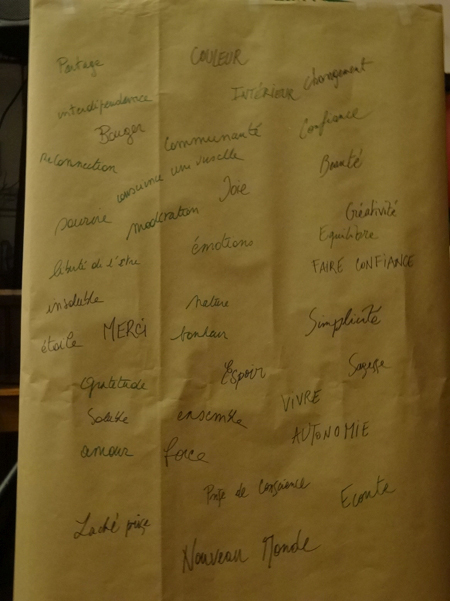 Partage
COULEUR
changement
INTÉRIEUR
interdépendance
Bouger
Communauté
Confiance
Reconnection
conscience universelle
Beauté
Joie
sourire
modération
Créativité
Equilibre
émotions
liberté de l'être
FAIRE CONFIANCE
nature
étoile
MERCI
bonheur
Simplicité
Sagesse
Gratitude
Espoir
VIVRE
ensemble
AUTONOMIE
amour
force
Prise de conscience
Ecoute
Laché prise
Nouveau Monde